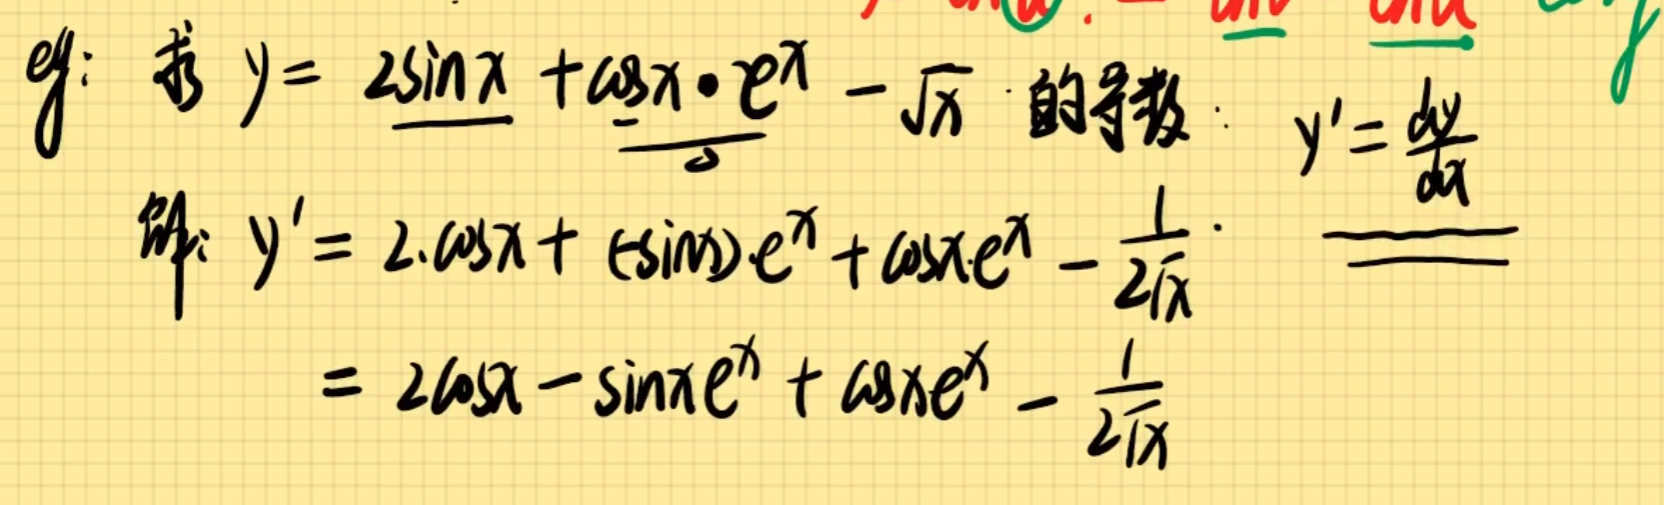 eg: 求 y = 2sinx + cosx · e^x − √x 的导数. y' = dy/dx
解: y' = 2·cosx + (-sinx)·e^x + cosx·e^x − 1/(2√x).
= 2cosx − sinxe^x + cosxe^x − 1/(2√x)